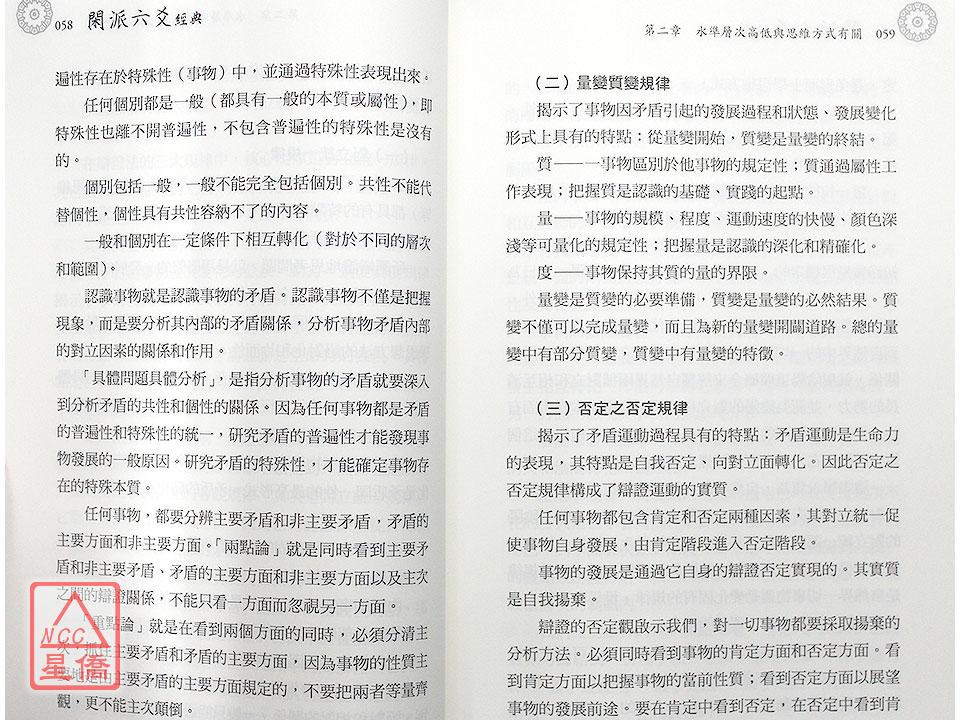 058 閑派六爻經典
遍性存在於特殊性（事物）中，並通過特殊性表現出來。
任何個別都是一般（都具有一般的本質或屬性），即
特殊性也離不開普遍性，不包含普遍性的特殊性是沒有
的。
個別包括一般，一般不能完全包括個別。共性不能代
替個性，個性具有共性容納不了的內容。
一般和個別在一定條件下相互轉化（對於不同的層次
和範圍）。
認識事物就是認識事物的矛盾。認識事物不僅是把握
現象，而是要分析其內部的矛盾關係，分析事物矛盾內部
的對立因素的關係和作用。
「具體問題具體分析」，是指分析事物的矛盾就要深入
到分析矛盾的共性和個性的關係。因為任何事物都是矛盾
的普遍性和特殊性的統一，研究矛盾的普遍性才能發現事
物發展的一般原因。研究矛盾的特殊性，才能確定事物存
在的特殊本質。
任何事物，都要分辨主要矛盾和非主要矛盾，矛盾的
主要方面和非主要方面。「兩點論」就是同時看到主要矛
盾和非主要矛盾、矛盾的主要方面和非主要方面以及主次
之間的辯證關係，不能只看一方面而忽視另一方面。
「重點論」就是在看到兩個方面的同時，必須分清主
次，抓住主要矛盾和矛盾的主要方面，因為事物的性質主
要地是由主要矛盾的主要方面規定的，不要把兩者等量齊
觀，更不能主次顛倒。
NCC
星僑
第二章 水準層次高低與思維方式有關 059
（二）量變質變規律
揭示了事物因矛盾引起的發展過程和狀態、發展變化
形式上具有的特點：從量變開始，質變是量變的終結。
質——一事物區別於他事物的規定性；質通過屬性工
作表現；把握質是認識的基礎、實踐的起點。
量——事物的規模、程度、運動速度的快慢、顏色深
淺等可量化的規定性；把握量是認識的深化和精確化。
度——事物保持其質的量的界限。
量變是質變的必要準備，質變是量變的必然結果。質
變不僅可以完成量變，而且為新的量變開闢道路。總的量
變中有部分質變，質變中有量變的特徵。
（三）否定之否定規律
揭示了矛盾運動過程具有的特點：矛盾運動是生命力
的表現，其特點是自我否定、向對立面轉化。因此否定之
否定規律構成了辯證運動的實質。
任何事物都包含肯定和否定兩種因素，其對立統一促
使事物自身發展，由肯定階段進入否定階段。
事物的發展是通過它自身的辯證否定實現的。其實質
是自我揚棄。
辯證的否定觀啟示我們，對一切事物都要採取揚棄的
分析方法。必須同時看到事物的肯定方面和否定方面。看
到肯定方面以把握事物的當前性質；看到否定方面以展望
事物的發展前途。要在肯定中看到否定，在否定中看到肯